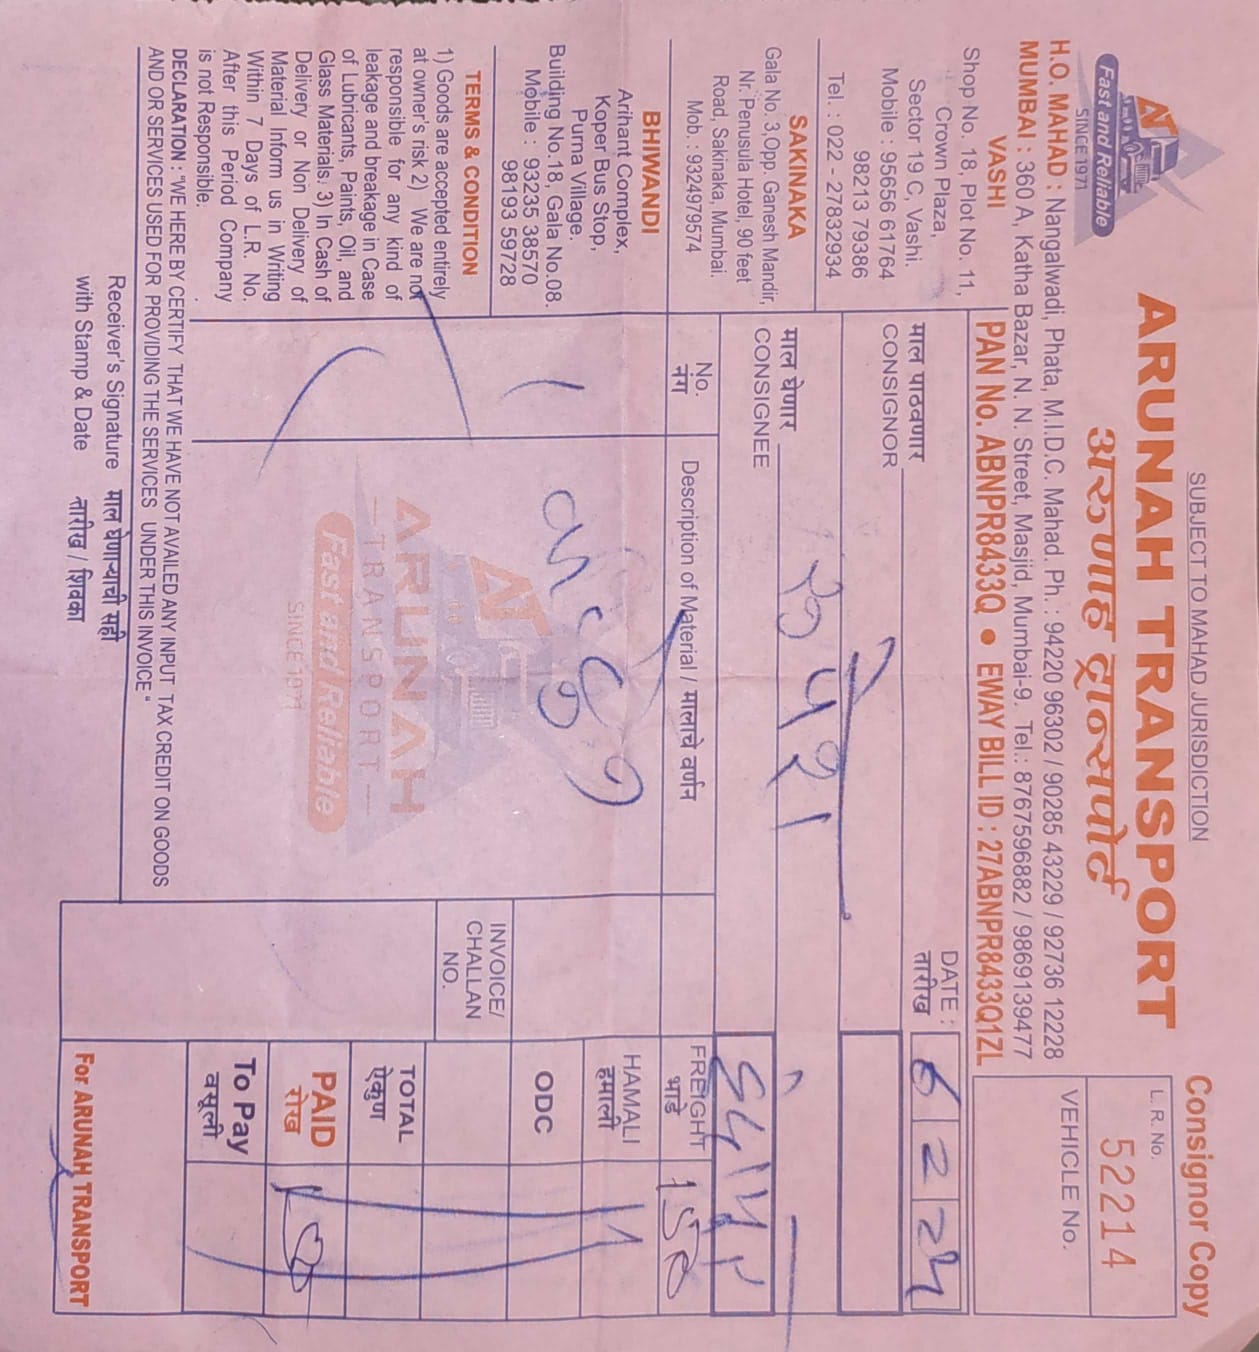 SUBJECT TO MAHAD JURISDICTION
Consignor Copy
AT
Fast and Reliable
SINCE 1971
ARUNAH TRANSPORT
अरुणाह ट्रान्सपोर्ट
L. R. No.
52214
H.O. MAHAD : Nangalwadi, Phata, M.I.D.C. Mahad. Ph. : 94220 96302 / 90285 43229 / 92736 12228
MUMBAI : 360 A, Katha Bazar, N. N. Street, Masjid, Mumbai-9. Tel.: 8767596882 / 9869139477
VEHICLE No.
PAN No. ABNPR8433Q • EWAY BILL ID : 27ABNPR8433Q1ZL
VASHI
Shop No. 18, Plot No. 11,
Crown Plaza,
Sector 19 C, Vashi.
Mobile : 95656 61764
98213 79386
Tel. : 022 - 27832934
SAKINAKA
Gala No. 3,Opp. Ganesh Mandir,
Nr. Penusula Hotel, 90 feet
Road, Sakinaka, Mumbai.
Mob. : 9324979574
BHIWANDI
Arihant Complex,
Koper Bus Stop,
Purna Village.
Building No.18, Gala No.08.
Mobile : 93235 38570
98193 59728
TERMS & CONDITION
1) Goods are accepted entirely
at owner's risk 2) We are not
responsible for any kind of
leakage and breakage in Case
of Lubricants, Paints, Oil, and
Glass Materials. 3) In Cash of
Delivery or Non Delivery of
Material Inform us in Writing
Within 7 Days of L.R. No.
After this Period Company
is not Responsible.
माल पाठवणार
CONSIGNOR
DATE :
तारीख
6 2 24
माल घेणार
CONSIGNEE
No.
नंग
Description of Material / मालाचे वर्णन
FREIGHT
भाडे
150
HAMALI
हमाली
ODC
INVOICE/
CHALLAN
NO.
TOTAL
ऐकुण
PAID
रोख
To Pay
वसूली
AT
ARUNAH
TRANSPORT
Fast and Reliable
SINCE 1971
DECLARATION : "WE HERE BY CERTIFY THAT WE HAVE NOT AVAILED ANY INPUT TAX CREDIT ON GOODS
AND OR SERVICES USED FOR PROVIDING THE SERVICES UNDER THIS INVOICE."
Receiver's Signature माल घेणाऱ्याची सही
with Stamp & Date तारीख / शिक्का
For ARUNAH TRANSPORT